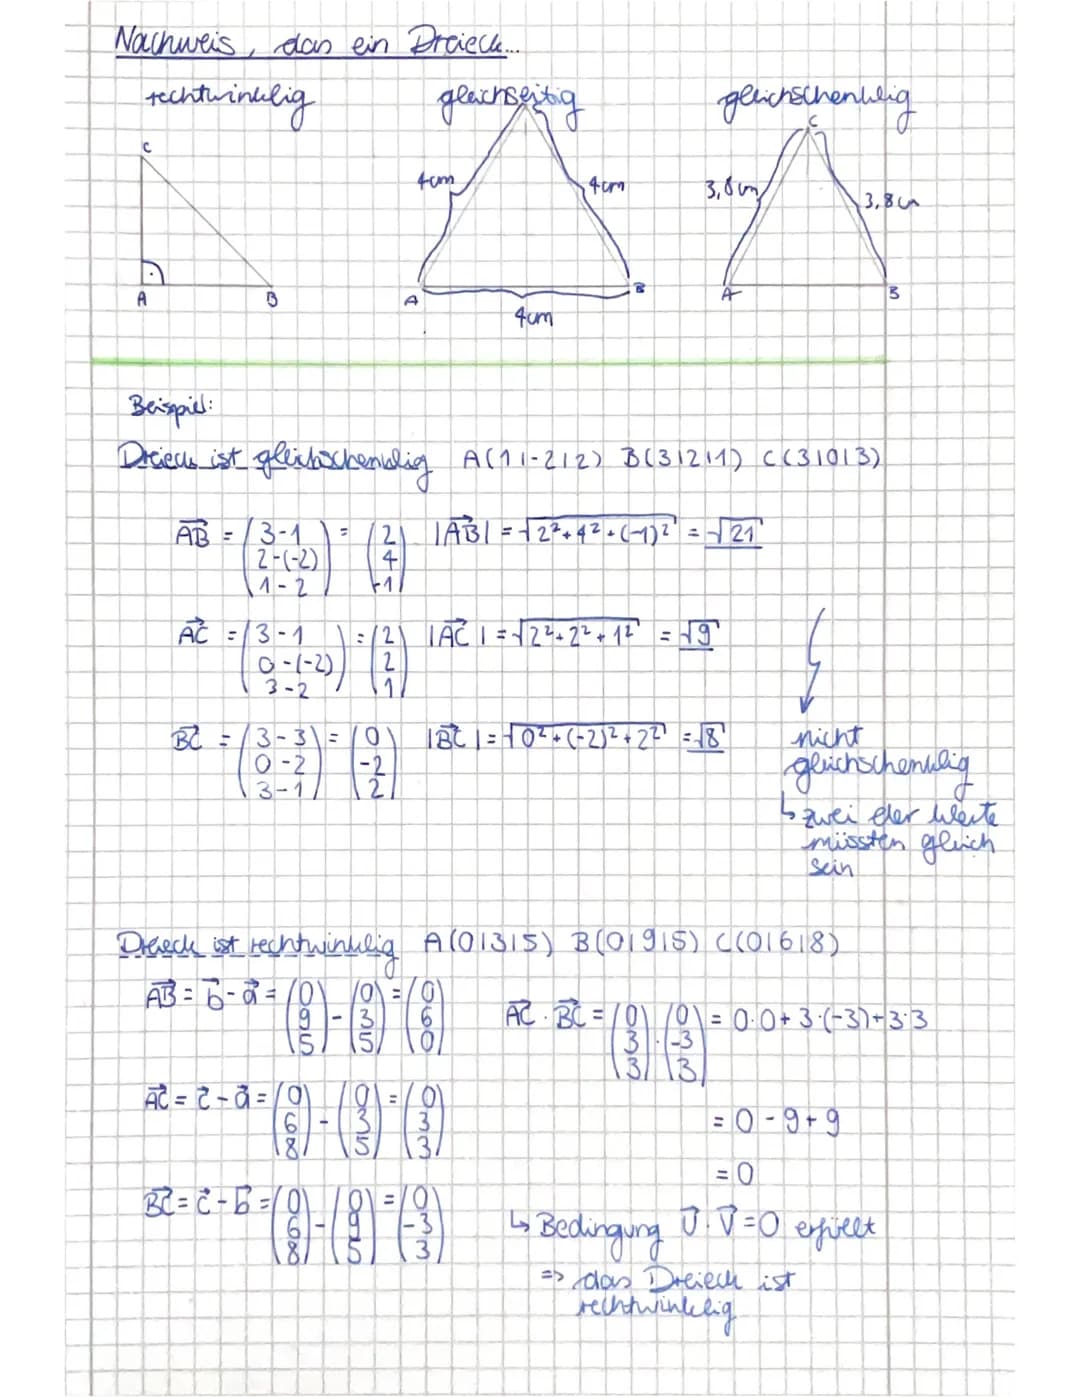 Nachweis, das ein Dreieck...
rechtwinklig gleichseitig gleichschenklig
C
A B
4cm 4cm
A B
4cm
C
3,8cm 3,8cm
A B
Beispiel:
Dreieck ist gleichschenklig A(1|-2|2) B(3|2|1) C(3|0|3)
AB = (3-1 / 2-(-2) / 1-2) = (2 / 4 / -1) |AB| = √2²+4²+(-1)² = √21
AC = (3-1 / 0-(-2) / 3-2) = (2 / 2 / 1) |AC| = √2²+2²+1² = √9
BC = (3-3 / 0-2 / 3-1) = (0 / -2 / 2) |BC| = √0²+(-2)²+2² = √8
nicht
gleichschenklig
↳ zwei der Werte
müssten gleich
sein
Dreieck ist rechtwinklig A(0|3|5) B(0|9|5) C(0|6|8)
AB = b - a = (0 / 9 / 5) - (0 / 3 / 5) = (0 / 6 / 0)
AC = c - a = (0 / 6 / 8) - (0 / 3 / 5) = (0 / 3 / 3)
BC = c - b = (0 / 6 / 8) - (0 / 9 / 5) = (0 / -3 / 3)
AC · BC = (0 / 3 / 3) · (0 / -3 / 3) = 0·0+3·(-3)+3·3
= 0 - 9 + 9
= 0
↳ Bedingung U · V = 0 erfüllt
=> das Dreieck ist
rechtwinklig